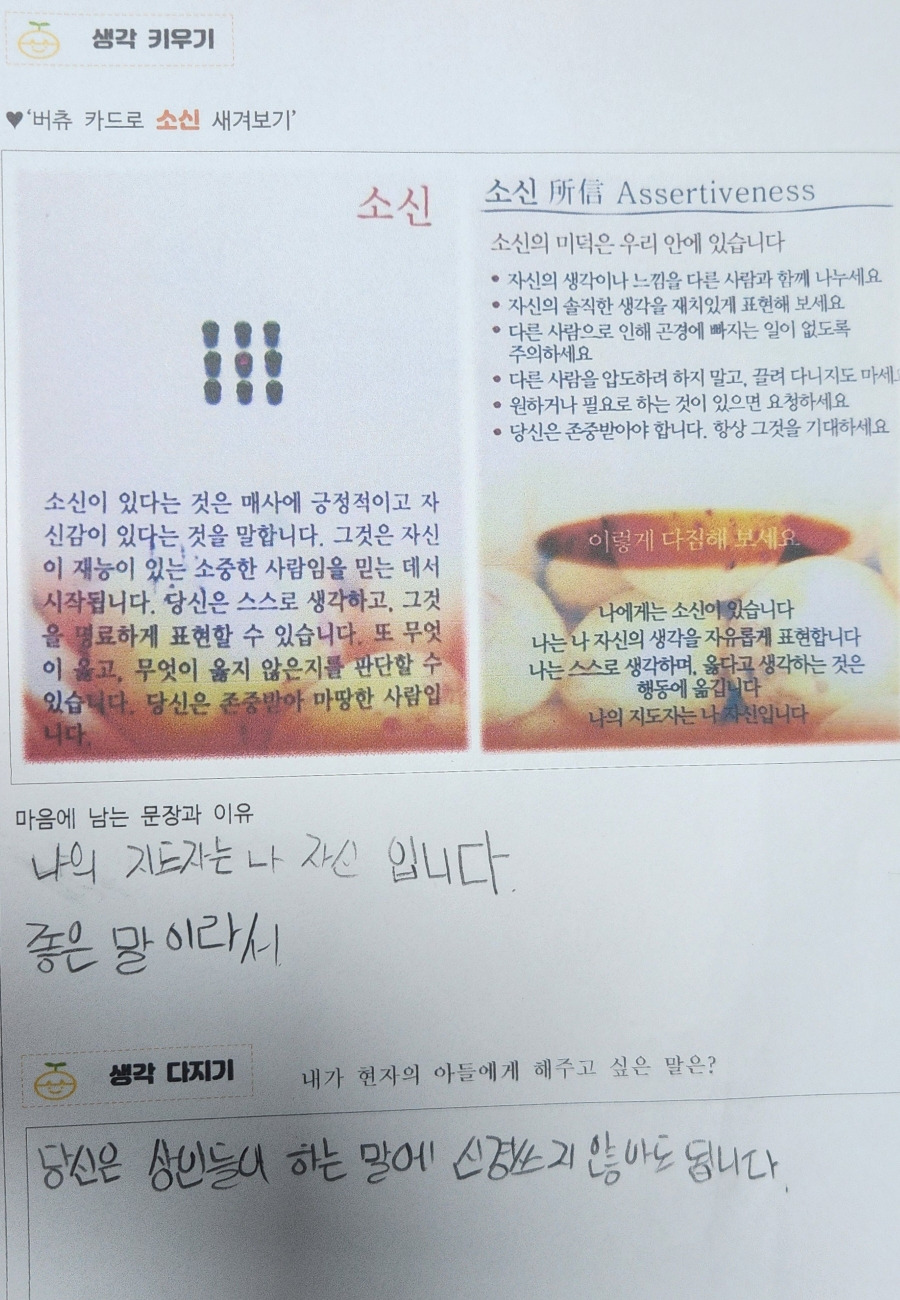 생각 키우기
♥‘버츄 카드로 소신 새겨보기’
소신
소신이 있다는 것은 매사에 긍정적이고 자
신감이 있다는 것을 말합니다. 그것은 자신
이 재능이 있는 소중한 사람임을 믿는 데서
시작됩니다. 당신은 스스로 생각하고, 그것
을 명료하게 표현할 수 있습니다. 또 무엇
이 옳고, 무엇이 옳지 않은지를 판단할 수
있습니다. 당신은 존중받아 마땅한 사람입
니다.
소신 所信 Assertiveness
소신의 미덕은 우리 안에 있습니다
• 자신의 생각이나 느낌을 다른 사람과 함께 나누세요
• 자신의 솔직한 생각을 재치있게 표현해 보세요
• 다른 사람으로 인해 곤경에 빠지는 일이 없도록
주의하세요
• 다른 사람을 압도하려 하지 말고, 끌려 다니지도 마세
• 원하거나 필요로 하는 것이 있으면 요청하세요
• 당신은 존중받아야 합니다. 항상 그것을 기대하세요
이렇게 다짐해 보세요
나에게는 소신이 있습니다
나는 나 자신의 생각을 자유롭게 표현합니다
나는 스스로 생각하며, 옳다고 생각하는 것은
행동에 옮깁니다
나의 지도자는 나 자신입니다
마음에 남는 문장과 이유
나의 지도자는 나 자신 입니다.
좋은 말 이라서
생각 다지기
내가 현자의 아들에게 해주고 싶은 말은?
당신은 상인들이 하는 말에 신경쓰지 않아도 됩니다.